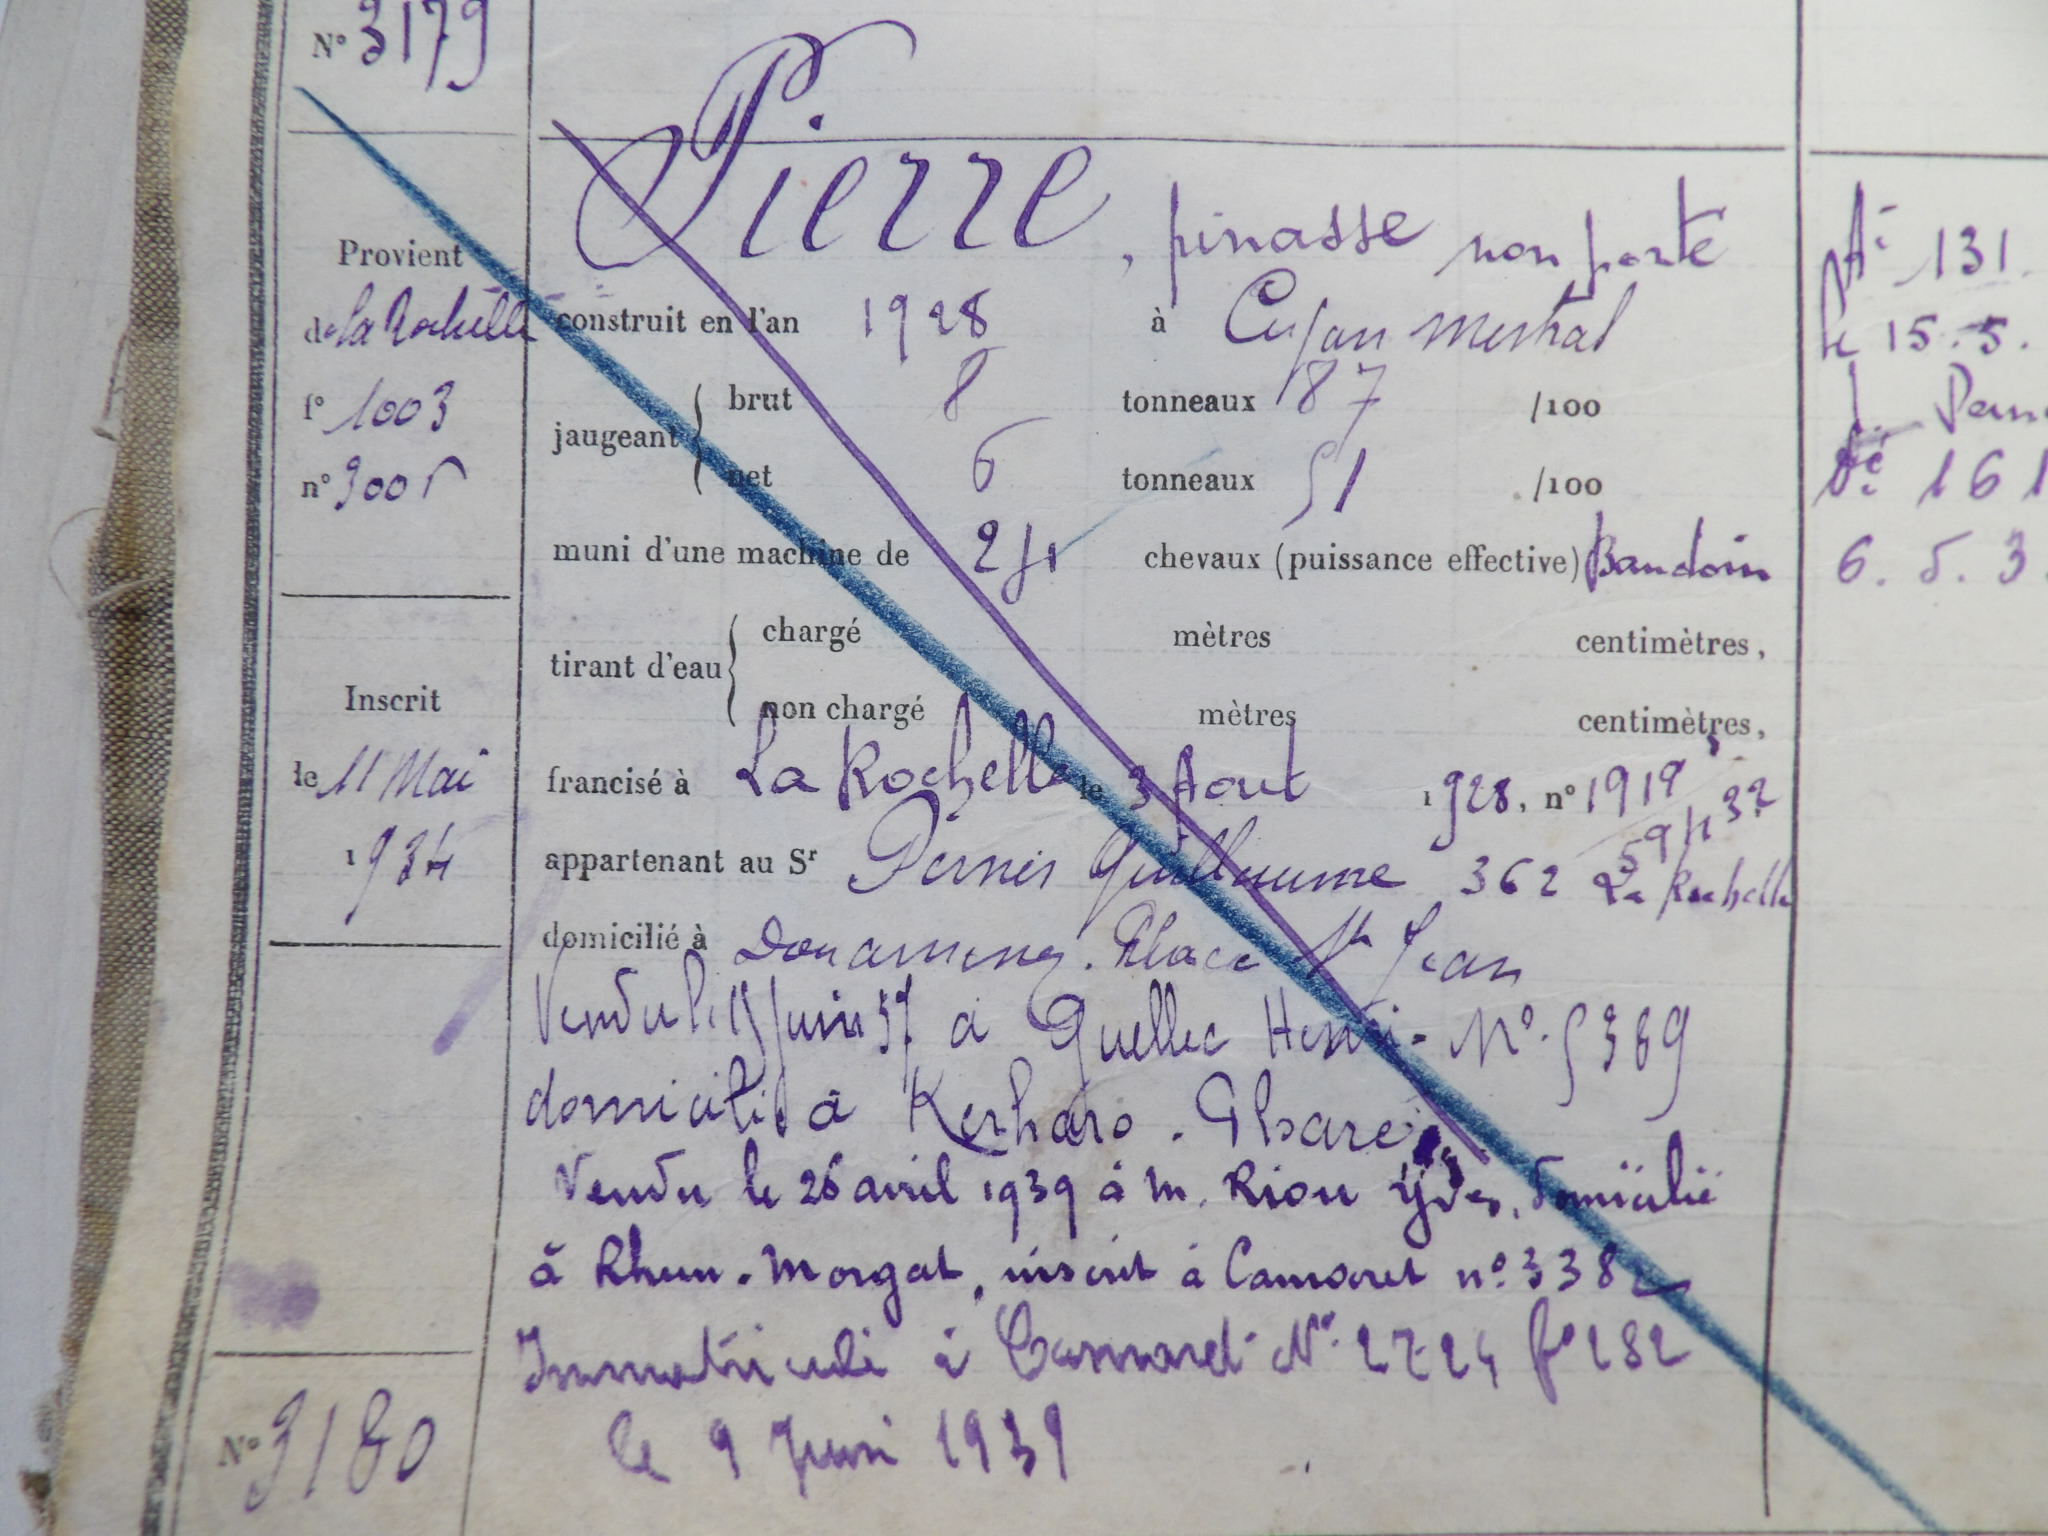 N° 3179
Pierre, pinasse non ponté
Provient
de La Rochelle
f° 1003
n° 3005
construit en l'an 1928 à Cujan Mestral
jaugeant brut 8 tonneaux 87 /100
net 6 tonneaux 51 /100
muni d'une machine de 24 chevaux (puissance effective) Baudoin
tirant d'eau chargé mètres centimètres,
non chargé mètres centimètres,
Inscrit
le 11 Mai
1934
francisé à La Rochelle le 3 Aout 1928, n° 1919
appartenant au Sr Guillaume 362 La Rochelle
domicilié à Douarnenez. Place St Jean
Vendu le juin 37 à Quellec Henri - N° 5369
domicilié à Kerharo.
Vendu le 26 avril 1939 à M. Riou Yves, domicilié
à Rhun-Morgat, inscrit à Camaret n° 3382
Immatriculé à Camaret N° 2724 f° 282
le 9 Juin 1939
N° 3180
131
le 15.5.
161
6.5.3